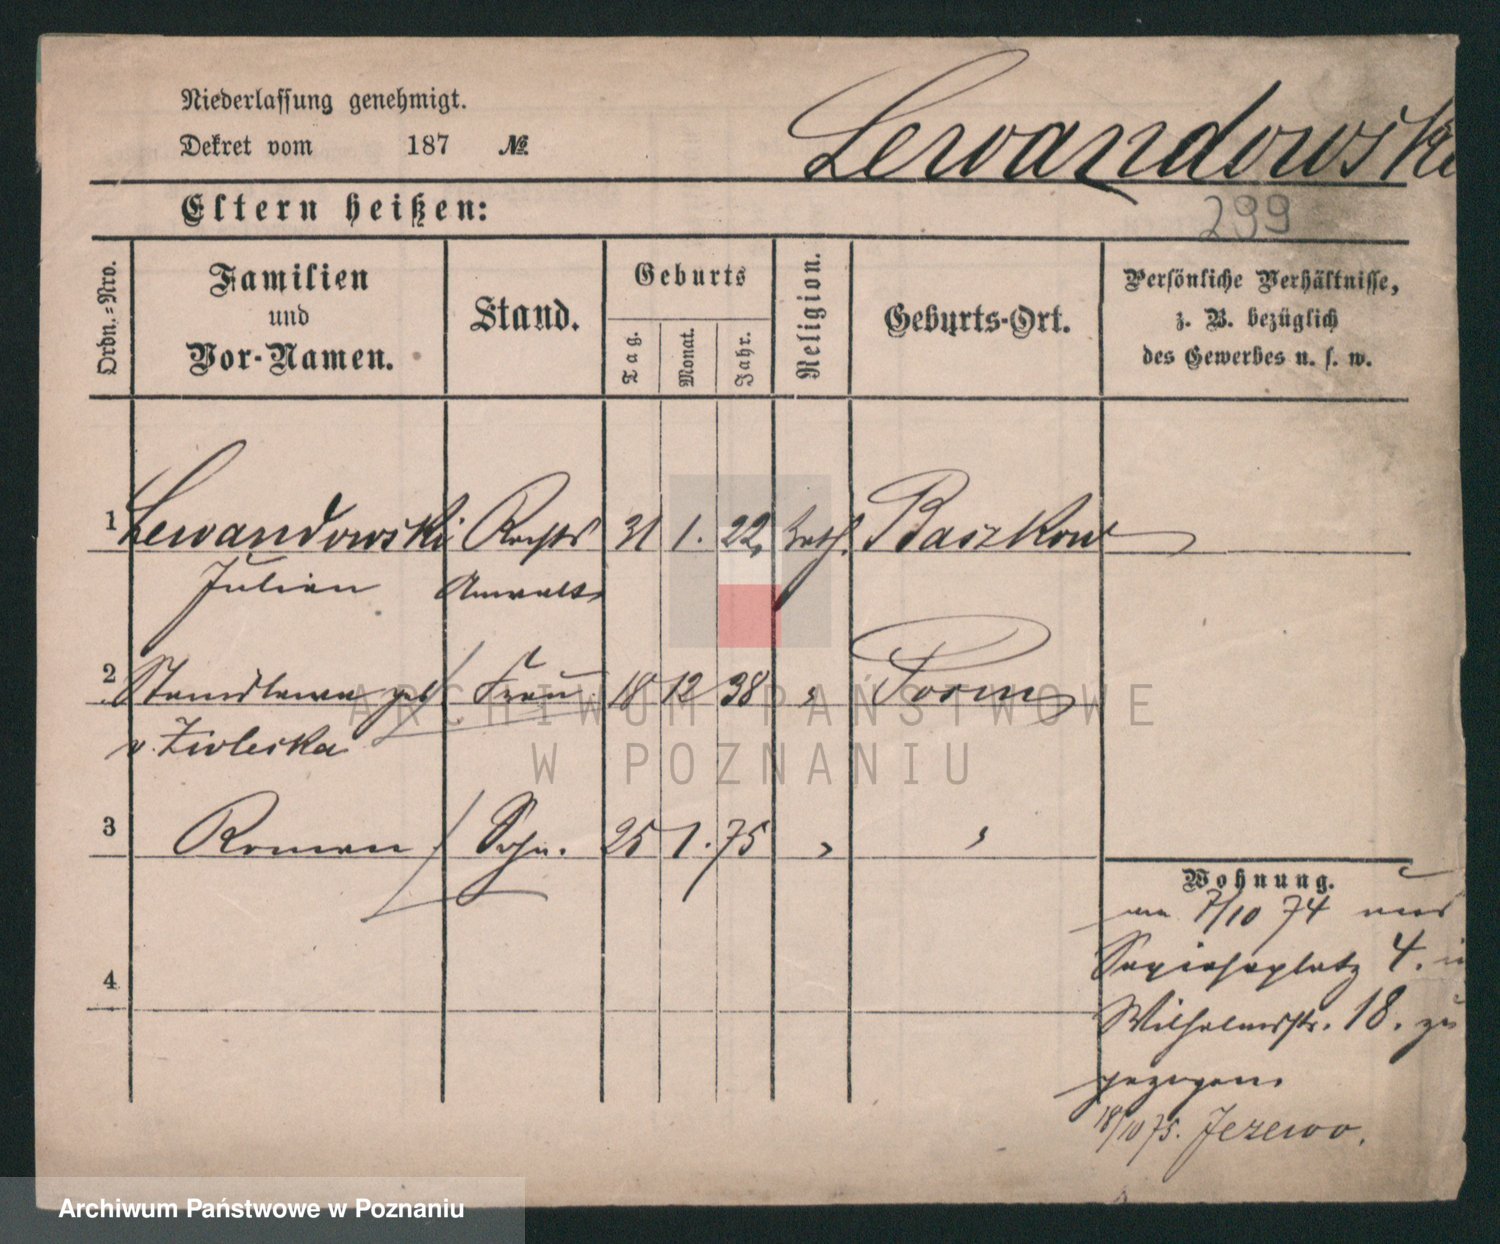 Niederlassung genehmigt.
Dekret vom 187 №
Lewandowski
Eltern heißen:
299
Ordn.-Nro.
Familien
und
Vor-Namen.
Stand.
Geburts
Tag.
Monat.
Jahr.
Religion.
Geburts-Ort.
Persönliche Verhältnisse,
z. B. bezüglich
des Gewerbes u. s. w.
1 Lewandowski Rechts 31 1. 22, kath. Baszkow
Julian Anwalt
2 Stanislawa geb Frau 18 12 38 " Posen
v.
3 Roman Sohn. 25 1. 75 " "
4
Wohnung.
7/10 74
Sapiehaplatz 4.
Wilhelmstr. 18. zu
gezogen.
18/10 75. Jezewo.
ARCHIWUM PAŃSTWOWE
W POZNANIU
Archiwum Państwowe w Poznaniu